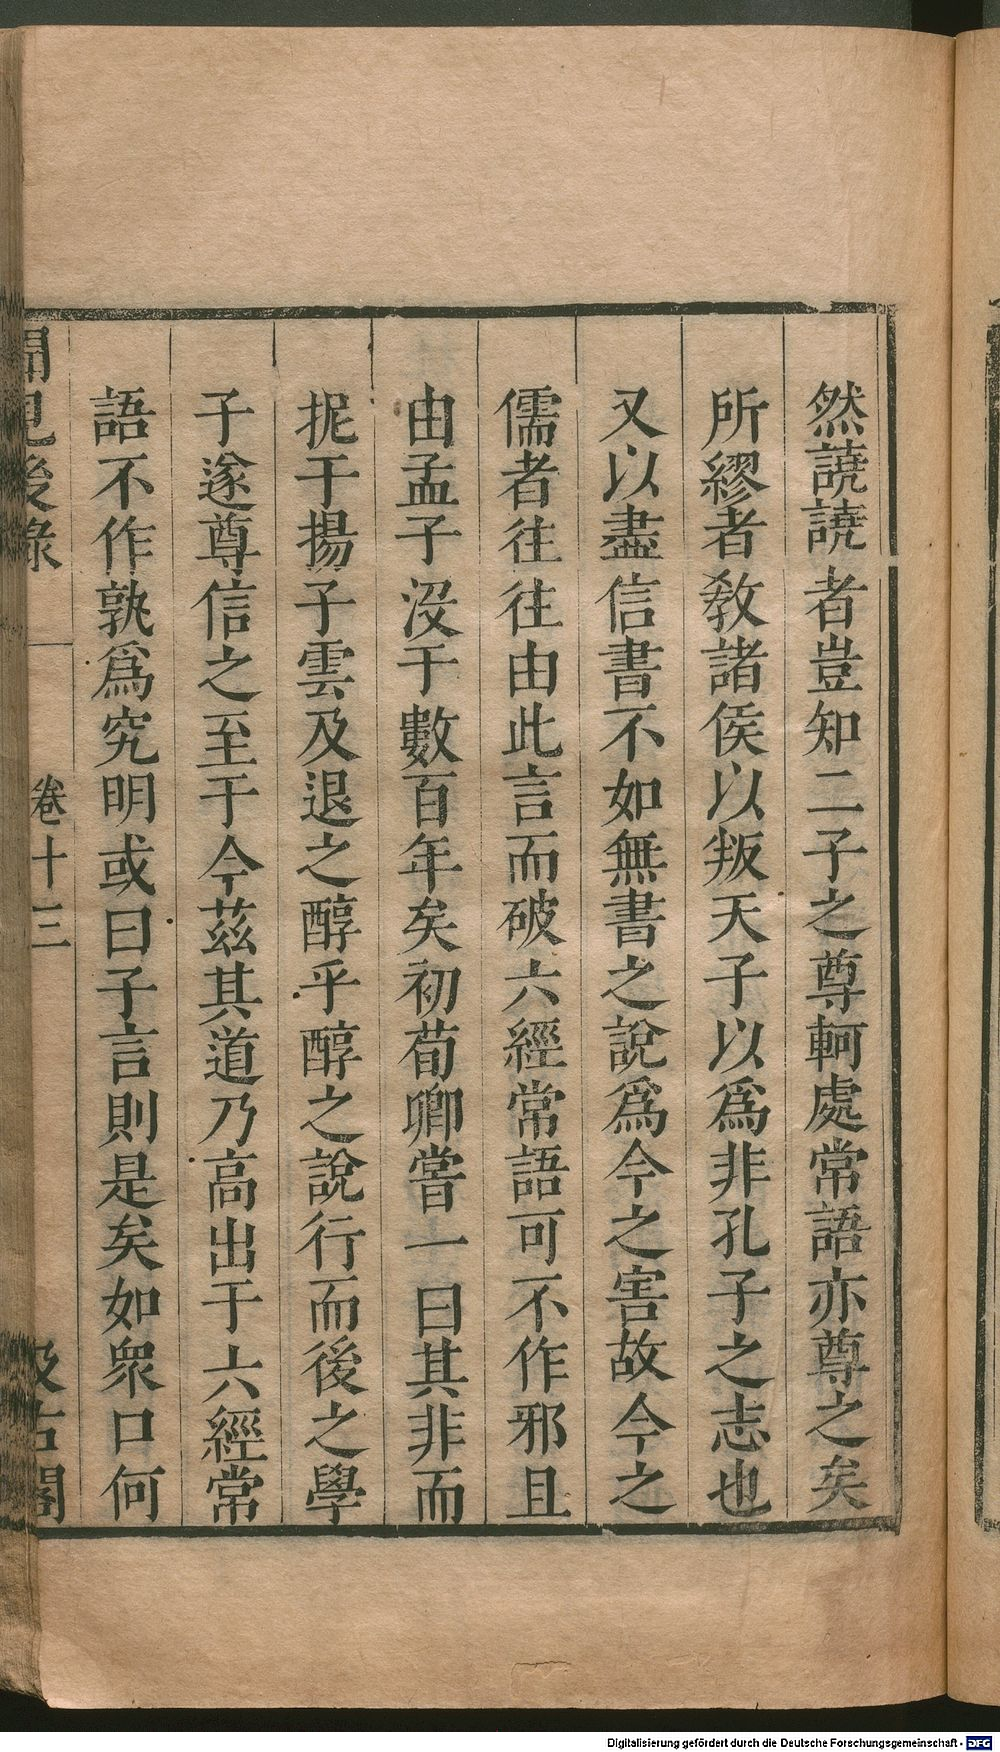 然譊譊者豈知二子之尊軻處常語亦尊之矣
所繆者敎諸侯以叛天子以爲非孔子之志也
又以盡信書不如無書之說爲今之害故今之
儒者往往由此言而破六經常語可不作邪且
由孟子没于數百年矣初荀卿嘗一曰其非而
扼于揚子雲及退之醇乎醇之說行而後之學
子遂尊信之至于今茲其道乃高出于六經常
語不作孰爲究明或曰子言則是矣如衆口何
聞見後錄
卷十三
汲古閣
Digitalisierung gefördert durch die Deutsche Forschungsgemeinschaft - DFG